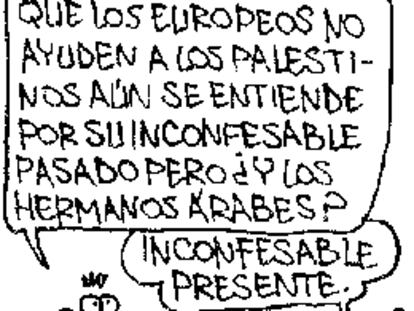 QUE LOS EUROPEOS NO
AYUDEN A LOS PALESTI-
NOS AÚN SE ENTIENDE
POR SU INCONFESABLE
PASADO PERO ¿Y LOS
HERMANOS ÁRABES?
INCONFESABLE
PRESENTE.